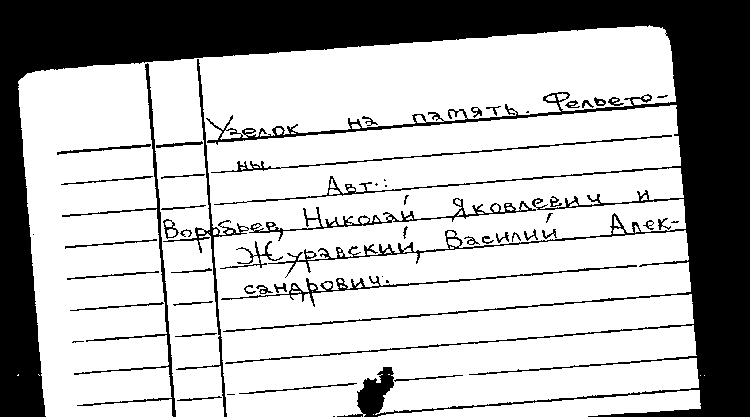 Узелок на память. Фельето-
ны.
Авт.:
Воробьев, Николай Яковлевич и
Журавский, Василий Алек-
сандрович.